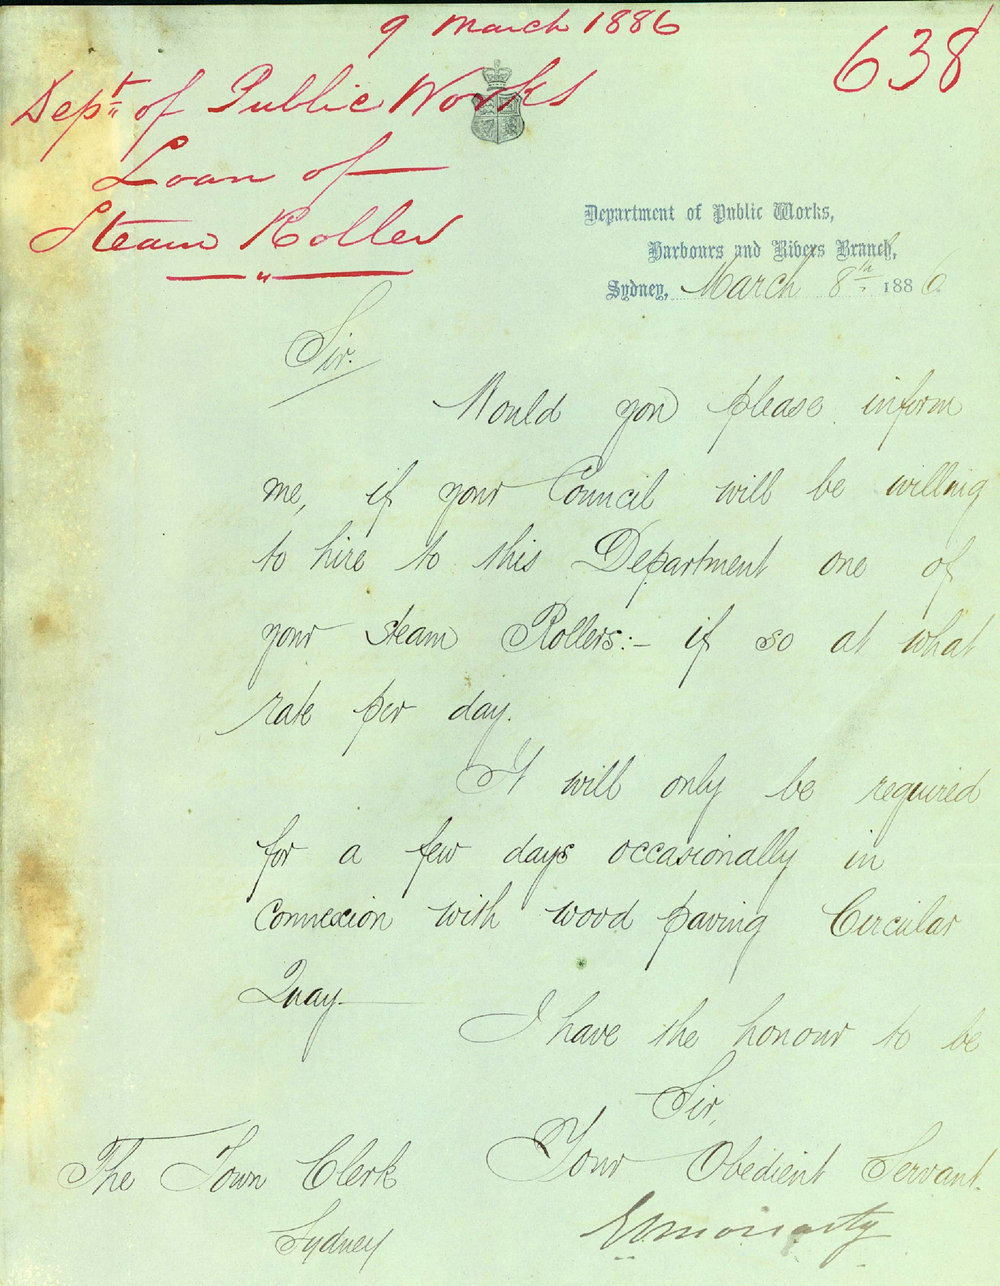 9 March 1886
638
Dept. of Public Works
Loan of
Steam Roller
Department of Public Works,
Harbours and Rivers Branch,
Sydney, March 8th 1886
Sir.
Would you please inform
me, if your Council will be willing
to hire to this Department one of
your steam Rollers:- if so at what
rate per day.
It will only be required
for a few days occasionally in
connexion with wood paving Circular
Quay.
I have the honour to be
Sir,
Your Obedient Servant.
The Town Clerk
Sydney
E O Moriarty